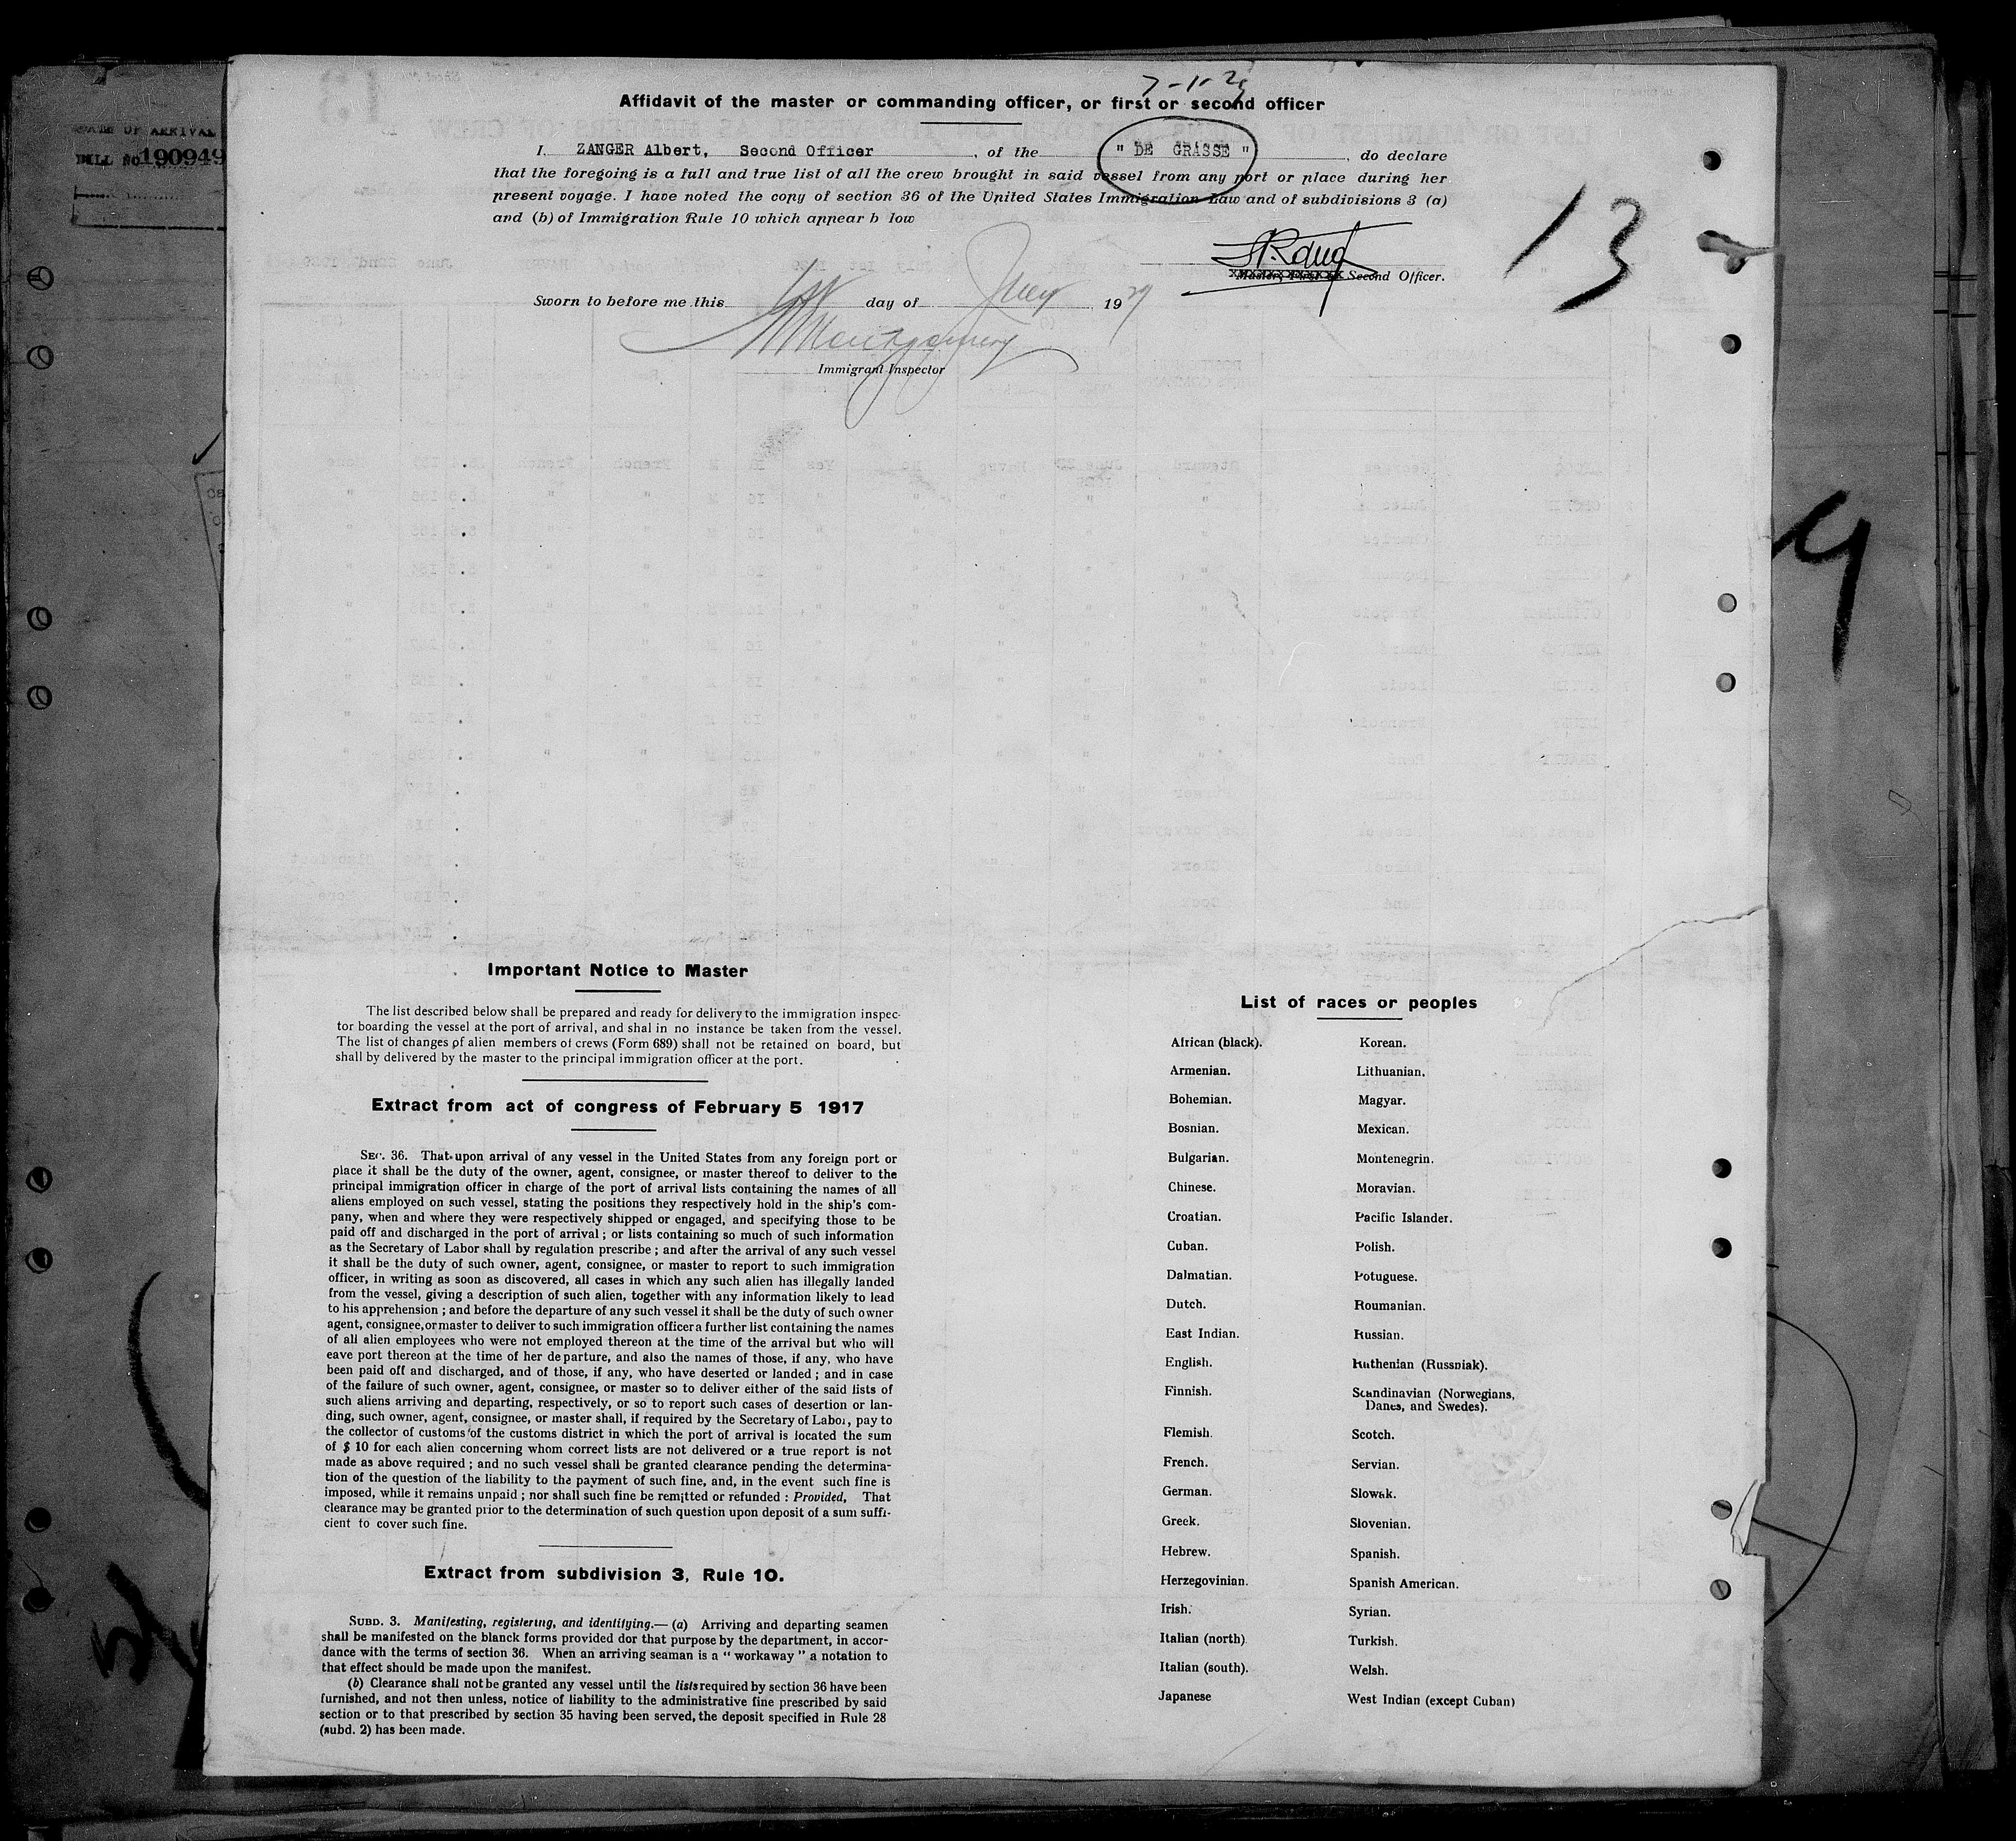 7-1-29
Affidavit of the master or commanding officer, or first or second officer
DATE OF ARRIVAL
BILL No 190949
I, ZANGER Albert, Second Officer , of the " DE GRASSE " , do declare
that the foregoing is a full and true list of all the crew brought in said vessel from any port or place during her
present voyage. I have noted the copy of section 36 of the United States Immigration Law and of subdivisions 3 (a)
and (b) of Immigration Rule 10 which appear b low
13
Second Officer.
Sworn to before me this 1st day of July 1929
Montgomery
Immigrant Inspector
Important Notice to Master
The list described below shall be prepared and ready for delivery to the immigration inspec-
tor boarding the vessel at the port of arrival, and shal in no instance be taken from the vessel.
The list of changes of alien members of crews (Form 689) shall not be retained on board, but
shall by delivered by the master to the principal immigration officer at the port.
Extract from act of congress of February 5 1917
SEC. 36. That upon arrival of any vessel in the United States from any foreign port or
place it shall be the duty of the owner, agent, consignee, or master thereof to deliver to the
principal immigration officer in charge of the port of arrival lists containing the names of all
aliens employed on such vessel, stating the positions they respectively hold in the ship's com-
pany, when and where they were respectively shipped or engaged, and specifying those to be
paid off and discharged in the port of arrival ; or lists containing so much of such information
as the Secretary of Labor shall by regulation prescribe ; and after the arrival of any such vessel
it shall be the duty of such owner, agent, consignee, or master to report to such immigration
officer, in writing as soon as discovered, all cases in which any such alien has illegally landed
from the vessel, giving a description of such alien, together with any information likely to lead
to his apprehension ; and before the departure of any such vessel it shall be the duty of such owner
agent, consignee, or master to deliver to such immigration officer a further list containing the names
of all alien employees who were not employed thereon at the time of the arrival but who will
eave port thereon at the time of her departure, and also the names of those, if any, who have
been paid off and discharged, and of those, if any, who have deserted or landed ; and in case
of the failure of such owner, agent, consignee, or master so to deliver either of the said lists of
such aliens arriving and departing, respectively, or so to report such cases of desertion or lan-
ding, such owner, agent, consignee, or master shall, if required by the Secretary of Labor, pay to
the collector of customs of the customs district in which the port of arrival is located the sum
of $ 10 for each alien concerning whom correct lists are not delivered or a true report is not
made as above required ; and no such vessel shall be granted clearance pending the determina-
tion of the question of the liability to the payment of such fine, and, in the event such fine is
imposed, while it remains unpaid ; nor shall such fine be remitted or refunded : Provided, That
clearance may be granted prior to the determination of such question upon deposit of a sum suffi-
cient to cover such fine.
Extract from subdivision 3, Rule 10.
SUBD. 3. Manifesting, registering, and identifying.— (a) Arriving and departing seamen
shall be manifested on the blanck forms provided dor that purpose by the department, in accor-
dance with the terms of section 36. When an arriving seaman is a " workaway " a notation to
that effect should be made upon the manifest.
(b) Clearance shall not be granted any vessel until the lists required by section 36 have been
furnished, and not then unless, notice of liability to the administrative fine prescribed by said
section or to that prescribed by section 35 having been served, the deposit specified in Rule 28
(subd. 2) has been made.
List of races or peoples
African (black).
Armenian.
Bohemian.
Bosnian.
Bulgarian.
Chinese.
Croatian.
Cuban.
Dalmatian.
Dutch.
East Indian.
English.
Finnish.
Flemish.
French.
German.
Greek.
Hebrew.
Herzegovinian.
Irish.
Italian (north)
Italian (south).
Japanese
Korean.
Lithuanian.
Magyar.
Mexican.
Montenegrin.
Moravian.
Pacific Islander.
Polish.
Potuguese.
Roumanian.
Russian.
Ruthenian (Russniak).
Scandinavian (Norwegians,
Danes, and Swedes).
Scotch.
Servian.
Slowak.
Slovenian.
Spanish.
Spanish American.
Syrian.
Turkish.
Welsh.
West Indian (except Cuban)